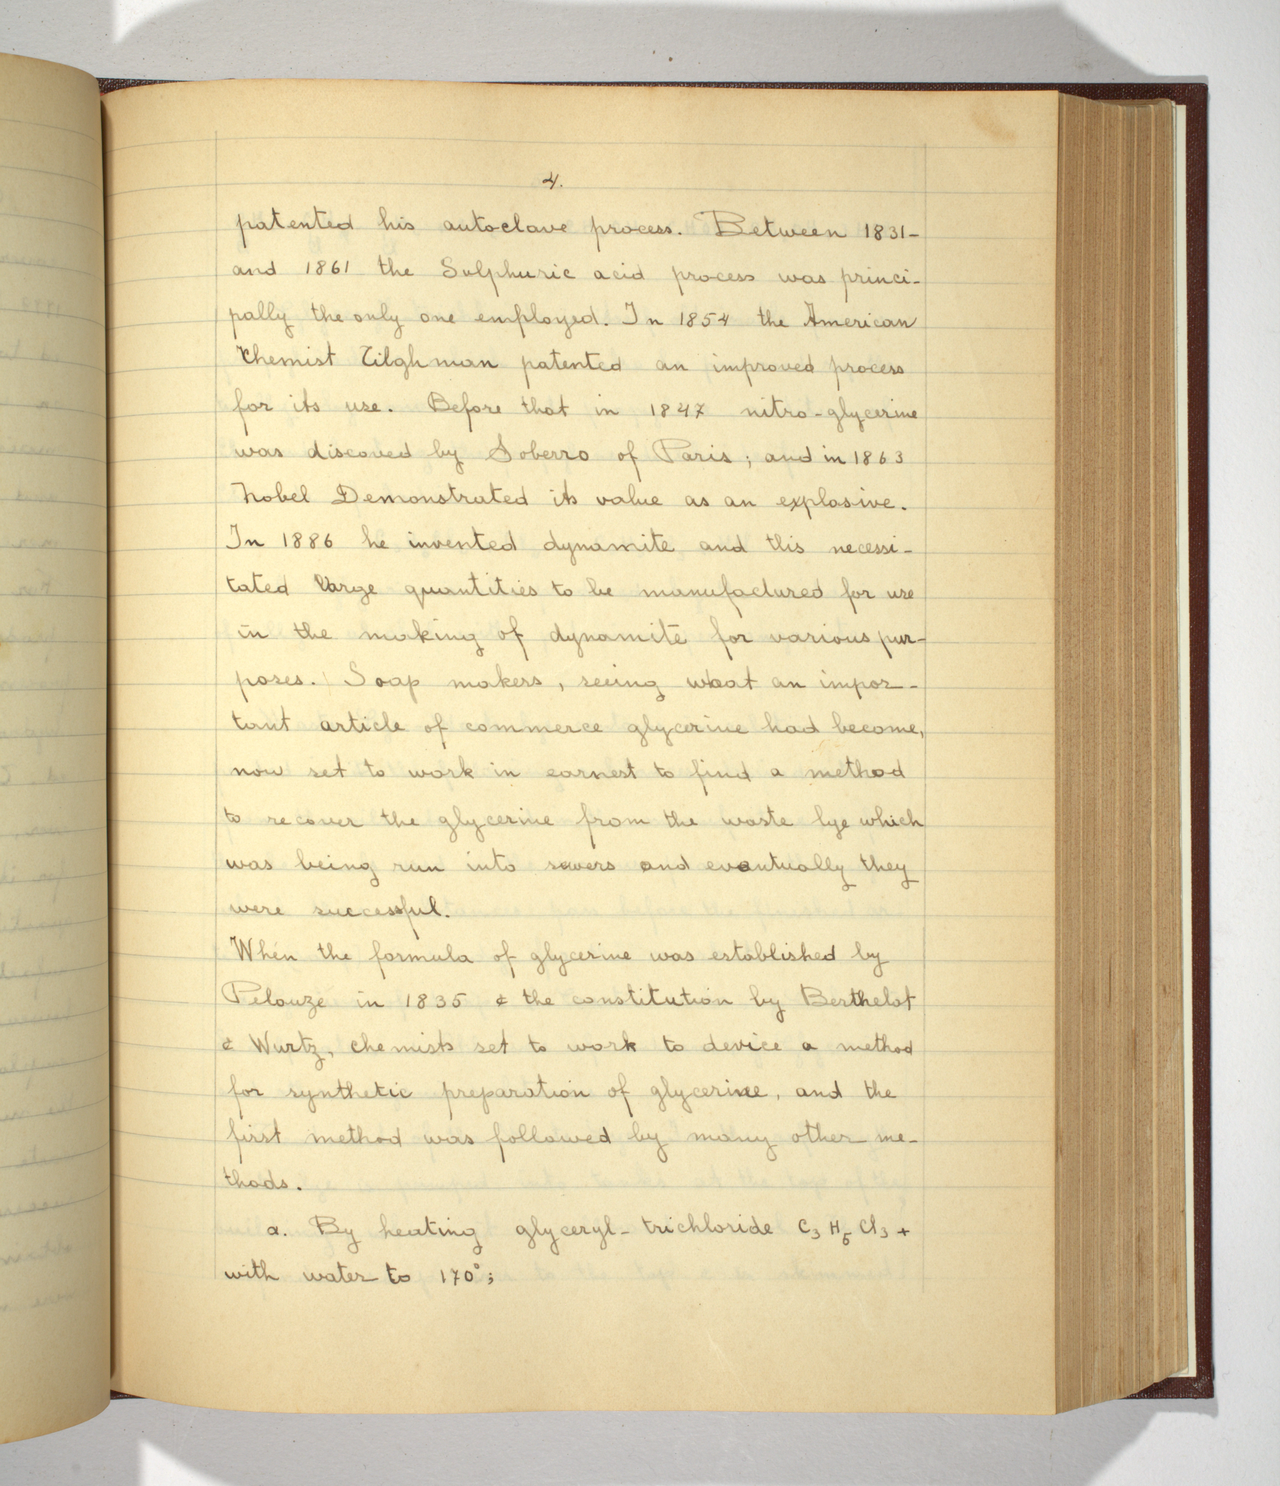 4.
patented his autoclave process. Between 1831-
and 1861 the Sulphuric acid process was princi-
pally the only one employed. In 1854 the American
Chemist Tilghman patented an improved process
for its use. Before that in 1847 nitro-glycerine
was discoved by Soberro of Paris; and in 1863
Nobel Demonstrated its value as an explosive.
In 1886 he invented dynamite and this necessi-
tated large quantities to be manufactured for use
in the making of dynamite for various pur-
poses. Soap makers, seeing what an impor-
tant article of commerce glycerine had become,
now set to work in earnest to find a method
to recover the glycerine from the waste lye which
was being run into sewers and eventually they
were successful.
When the formula of glycerine was established by
Pelouze in 1835 & the constitution by Berthelot
& Wurtz, chemists set to work to device a method
for synthetic preparation of glycerine, and the
first method was followed by many other me-
thods.
a. By heating glyceryl-trichloride C3 H5 Cl3 +
with water to 170°;